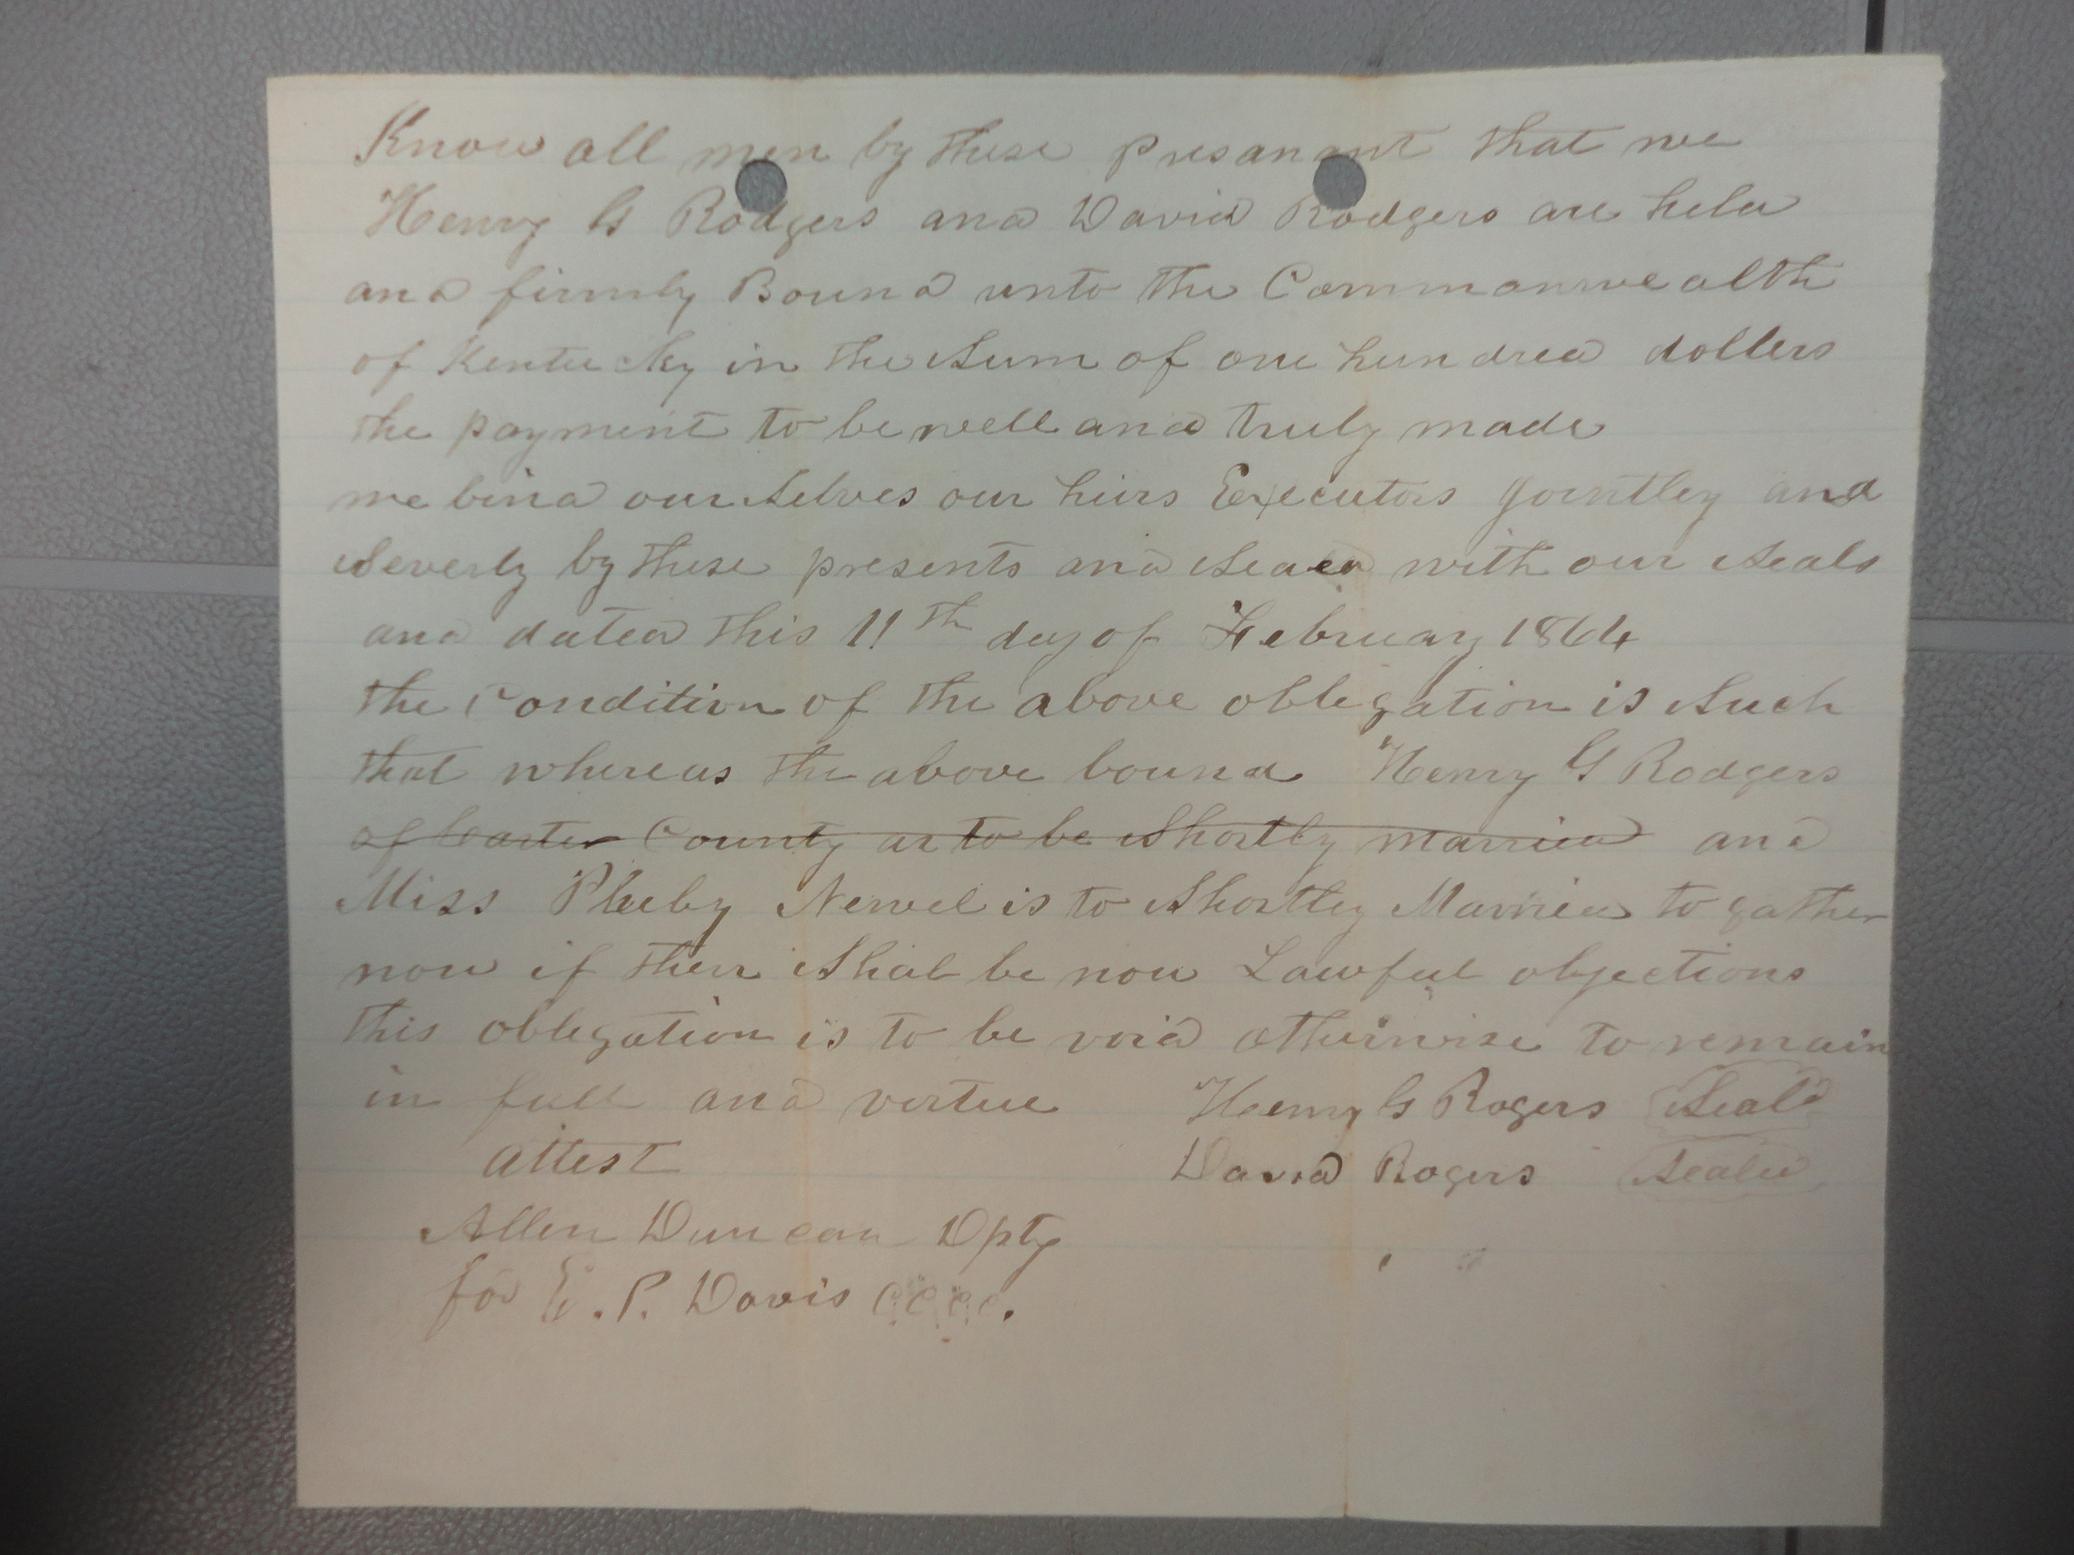 Know all men by these presanant that we
Henry G Rodgers and David Rodgers are held
and firmly Bound unto the Commonwealth
of Kentucky in the sum of one hundred dollers
the payment to be well and truly made
we bind our selves our heirs Executors jointley and
severly by these presents and sealed with our seals
and dated this 11th day of February 1864
the condition of the above oblegation is such
that whereas the above bound Henry G Rodgers
of Carter County ar to be shortly married and
Miss Pheby Newel is to shortley Married to gather
now if ther shal be now Lawful objections
this oblegation is to be void otherwise to remain
in full and virtue Henry G Rogers Seald
attest David Rogers Seald
Allen Duncan Dpty
for E. P. Davis CCCC.